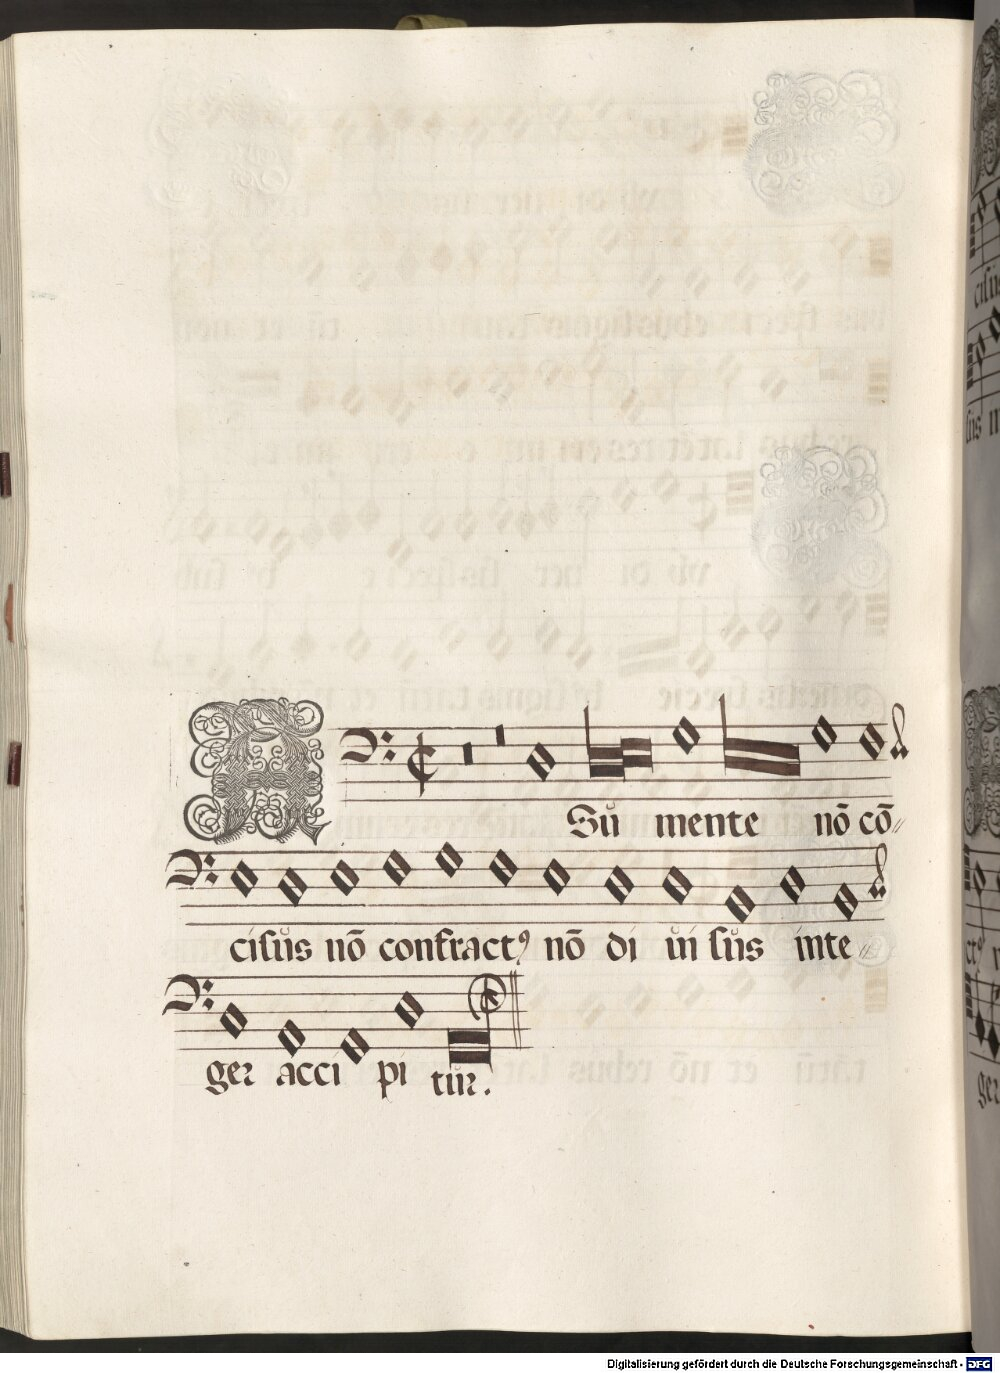 A
Sŭ mente nō cō//
cisŭs nō confractꝰ nō di ŭi sŭs inte//
ger acci pi tŭr.
Digitalisierung gefördert durch die Deutsche Forschungsgemeinschaft - DFG